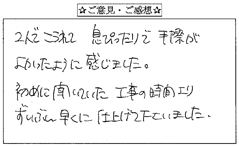 ☆ご意見・ご感想☆
2人でこられて 息ぴったりで 手際が
よかったように 感じました。
初めに聞いていた 工事の時間より
ずいぶん早くに 仕上げて下さいました。